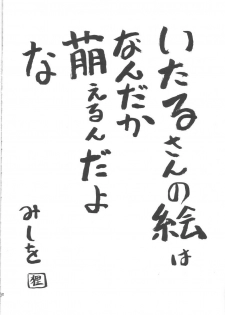 いたるさんの絵は
なんだか
萌えるんだよ
な
みしを
狸